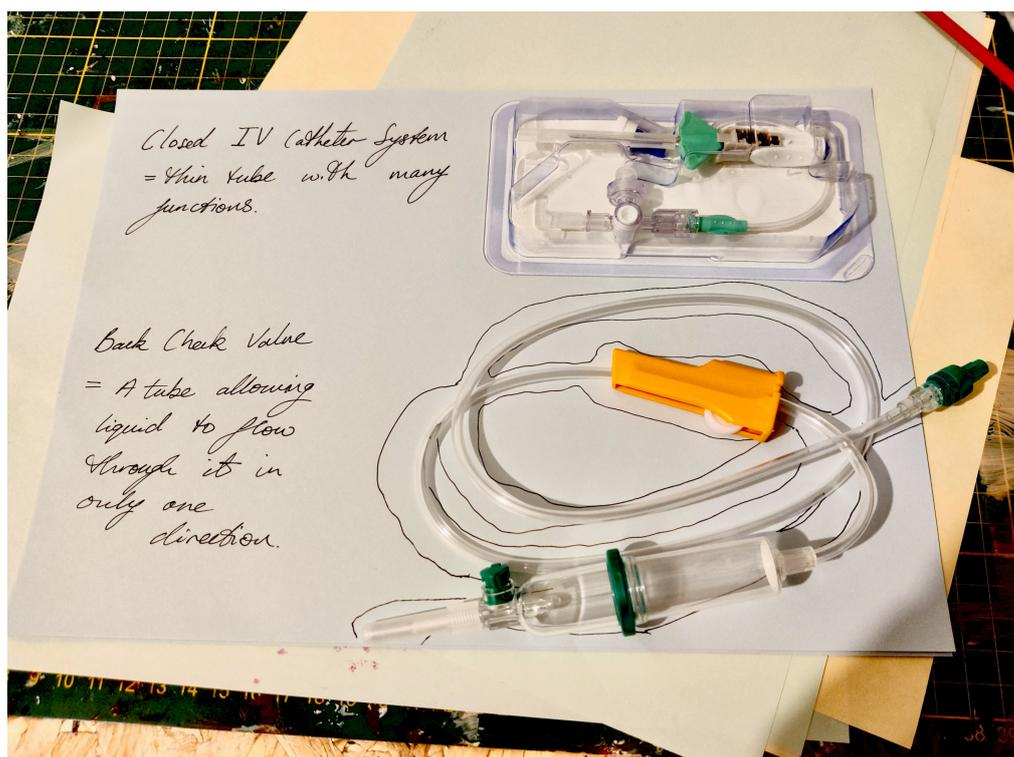 Closed IV Catheter System
= thin tube with many
junctions.
Back Check Valve
= A tube allowing
liquid to flow
through it in
only one
direction.
9 10 11 12 13 14 15 16 17 18
38 39